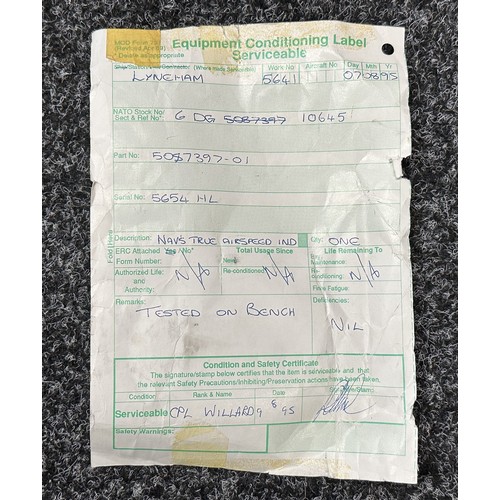 MOD Form 731
(Revised Apr 83)
* Delete as appropriate
Equipment Conditioning Label
Serviceable
Work No Aircraft No Day Mth Yr
LYNEHAM 5641 07 08 95
NATO Stock No/
Sect & Ref No* 6 DG 5087397 10645
Part No: 5087397-01
Serial No: 5654 HL
Fold Here
Description: NAV'S TRUE AIRSPEED IND Qty: ONE
ERC Attached Yes /No* Total Usage Since Life Remaining To
Form Number: N/A New: Maintenance:
Authorized Life: Re-conditioned: N/A Re-conditioning: N/A
and
Authority: Fatigue:
Remarks: Deficiencies:
TESTED ON BENCH NIL
Condition and Safety Certificate
The signature/stamp below certifies that the item is serviceable and that
the relevant Safety Precautions/Inhibiting/Preservation actions have been taken.
Condition Rank & Name Date
Serviceable CPL WILLARD 9 8 95
Safety Warnings: